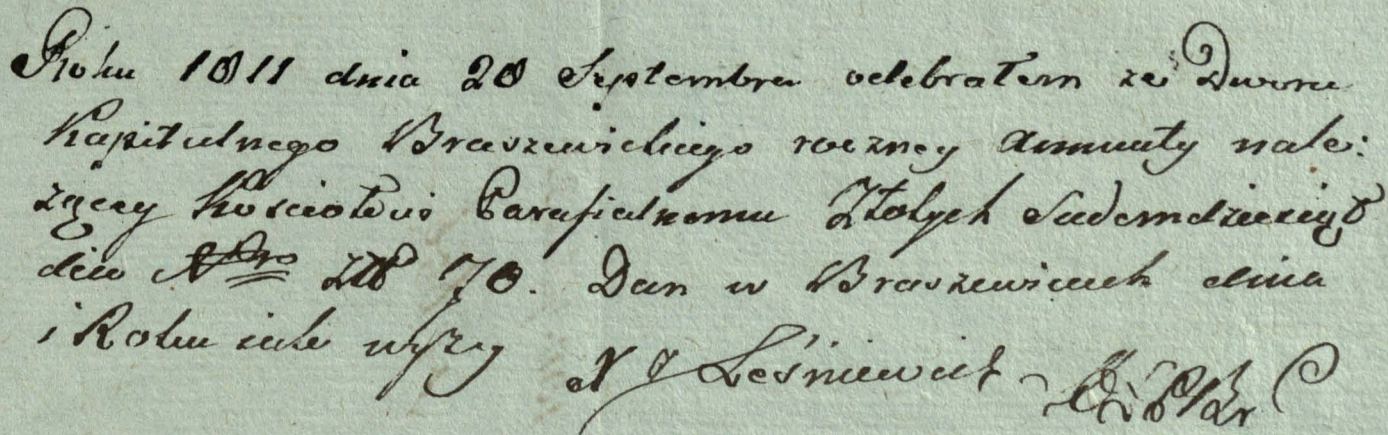 Roku 1811 dnia 20 Septembra odebrałem ze Dworu
Kapitulnego Braszewickiego roczney Annuaty nale:
żącey Kościołowi Parafialnemu Złotych Siedemdziesiąt
dico Nro Złt 70. Dan w Braszewicach dnia
i Roku jak wyżey Leśniewicz